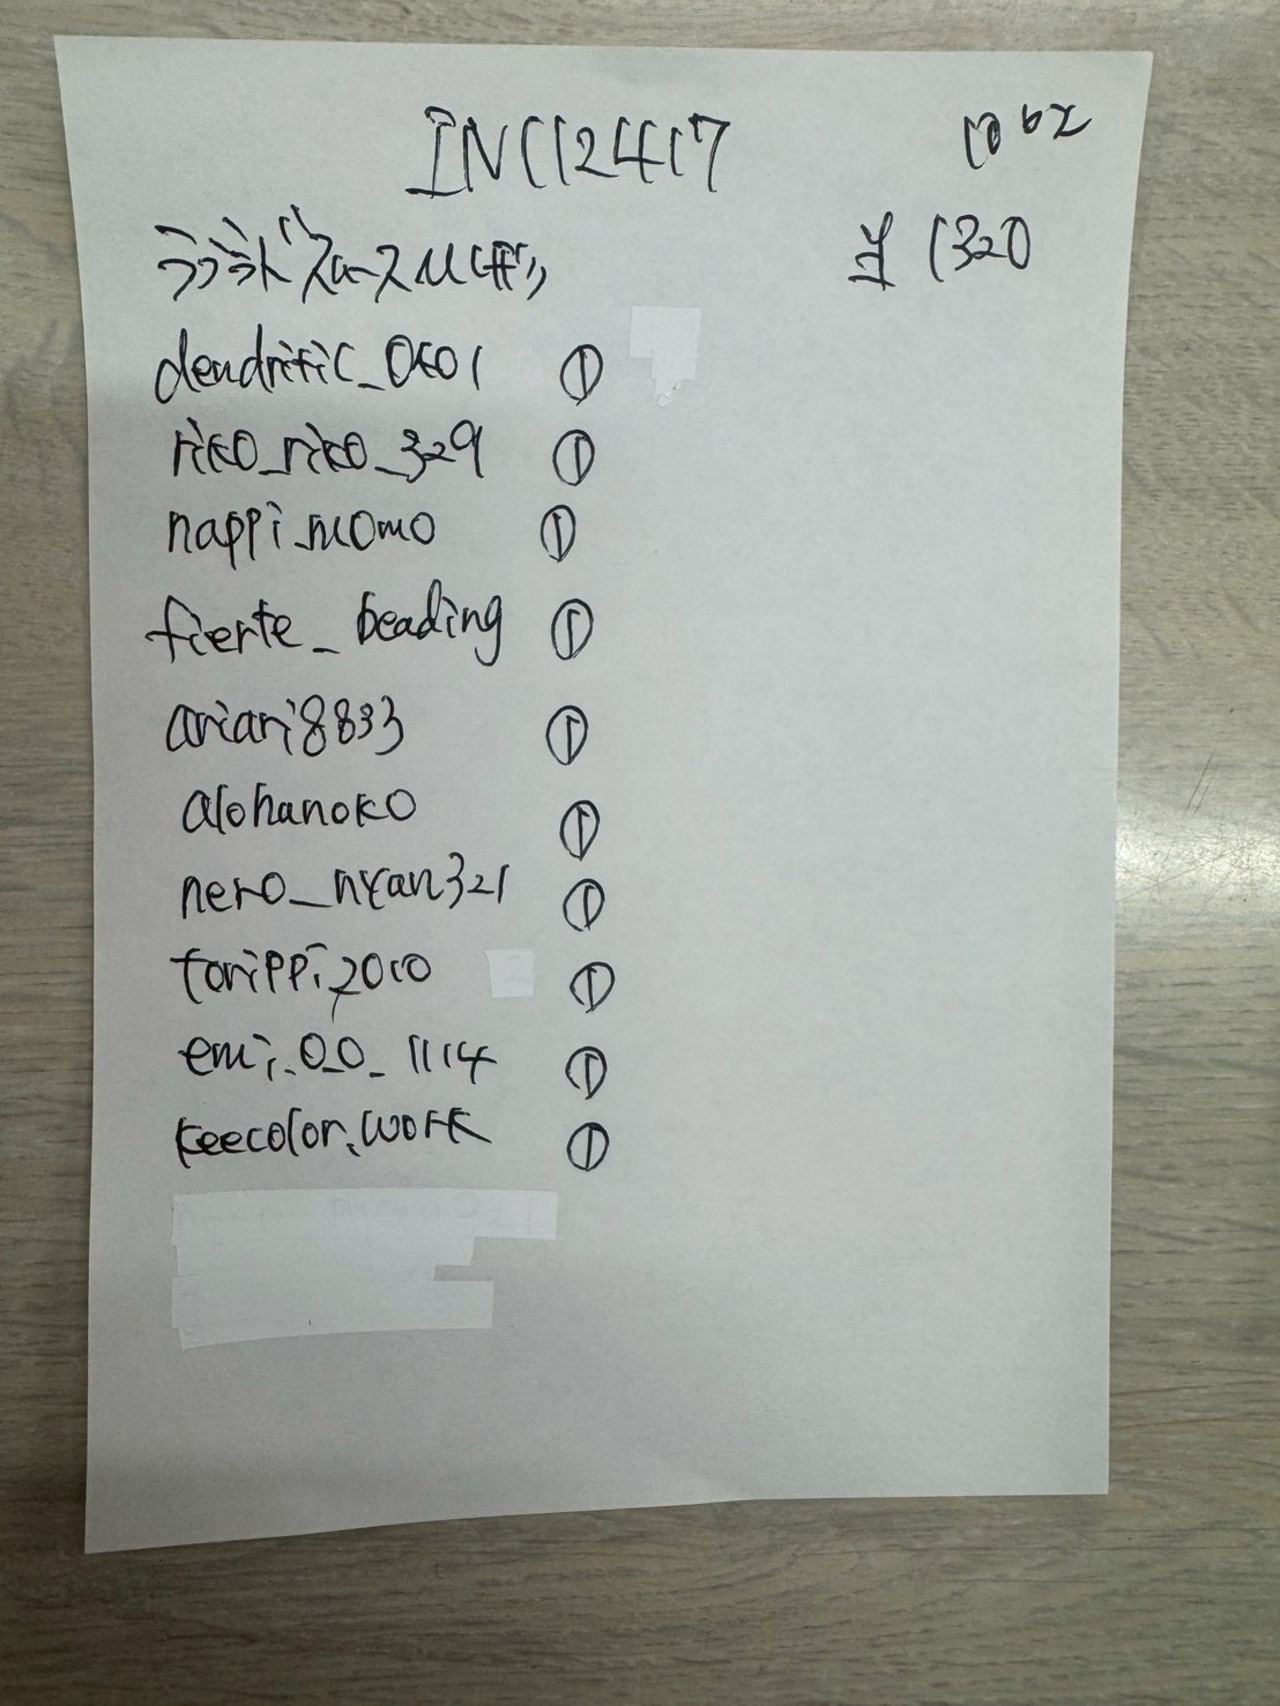 INC112417
10 bz
¥ 1320
dendritic_0401
①
riko_riko_329 ①
nappi_momo ①
fierte_beading ①
ariari8833 ①
alohanoko ①
nero_nyan321 ①
torippi_2010 ①
emi_0_0_1114 ①
keecolor.work ①